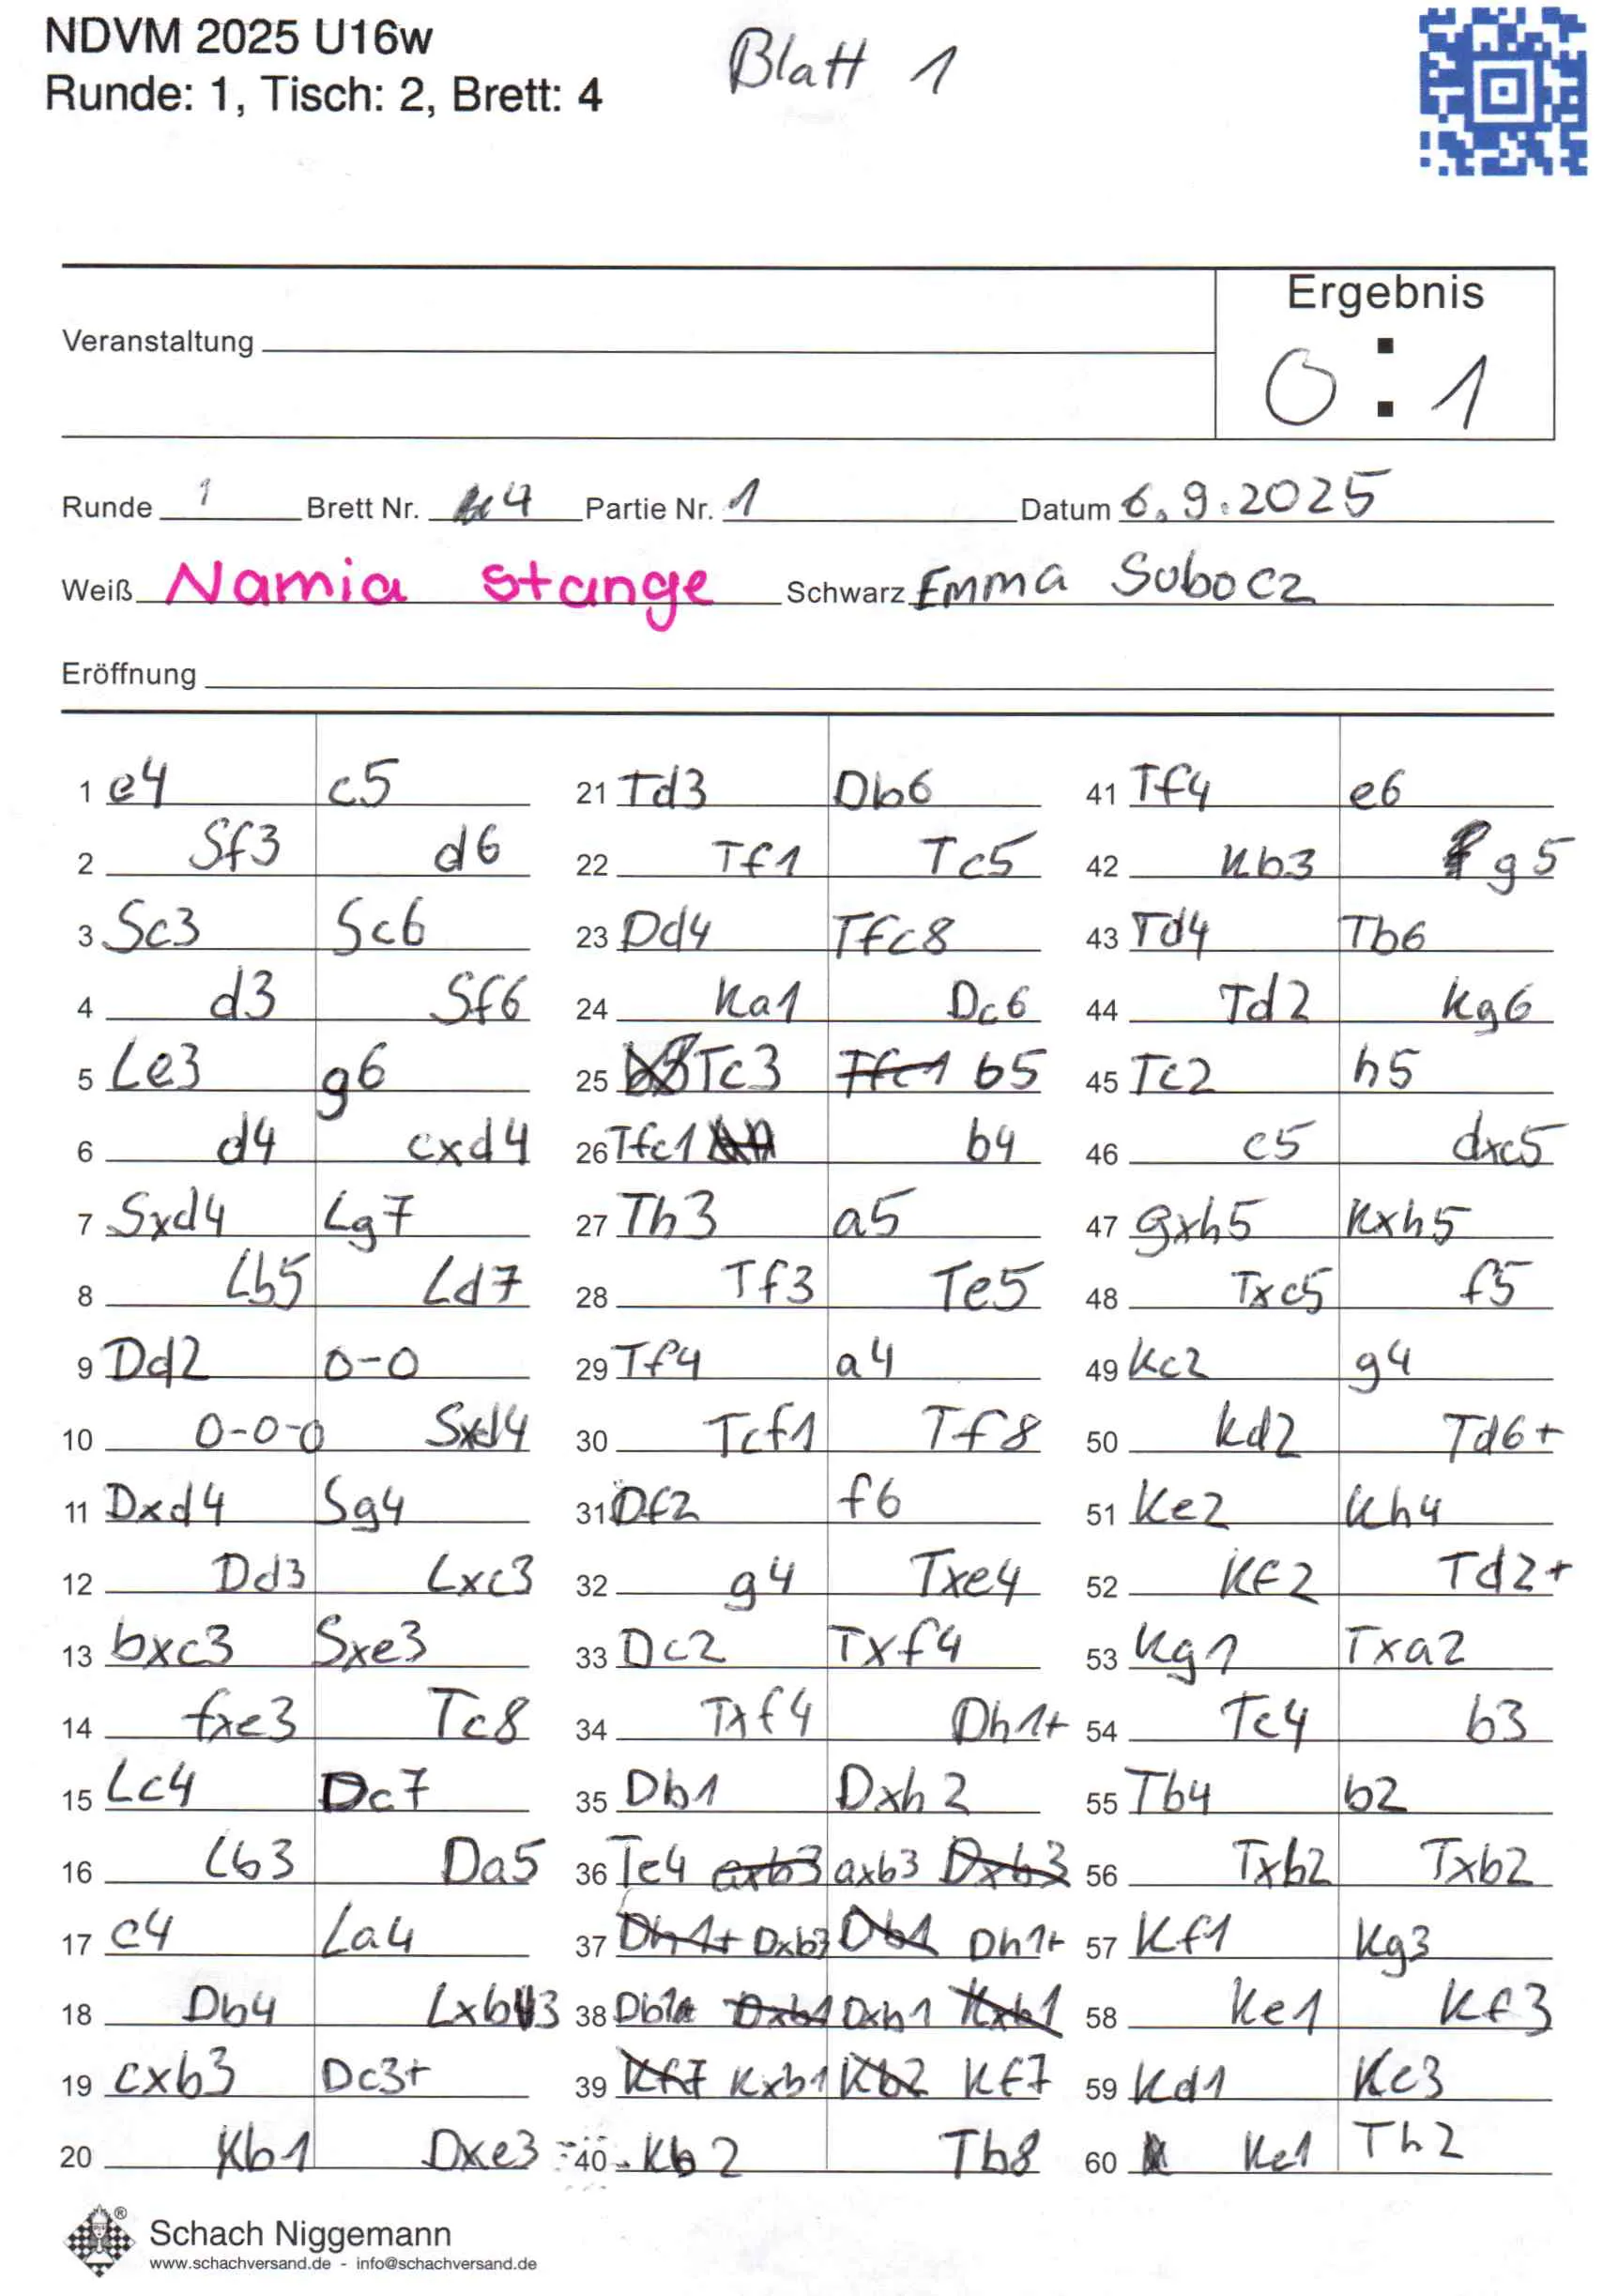 NDVM 2025 U16w
Runde: 1, Tisch: 2, Brett: 4
Blatt 1
Ergebnis
Veranstaltung
0 : 1
Runde 1 Brett Nr. 4 Partie Nr. 1 Datum 6.9.2025
Weiß Namia Stange Schwarz Emma Subocz
Eröffnung
1 e4 c5 21 Td3 Db6 41 Tf4 e6
2 Sf3 d6 22 Tf1 Tc5 42 Kb3 g5
3 Sc3 Sc6 23 Dd4 Tfc8 43 Td4 Tb6
4 d3 Sf6 24 Ka1 Dc6 44 Td2 Kg6
5 Le3 g6 25 Tc3 Tfc1 b5 45 Tc2 h5
6 d4 cxd4 26 Tfc1 b4 46 c5 dxc5
7 Sxd4 Lg7 27 Th3 a5 47 gxh5 Kxh5
8 Lb5 Ld7 28 Tf3 Te5 48 Txc5 f5
9 Dd2 0-0 29 Tf4 a4 49 Kc2 g4
10 0-0-0 Sxd4 30 Tcf1 Tf8 50 Kd2 Td6+
11 Dxd4 Sg4 31 Df2 f6 51 Ke2 Kh4
12 Dd3 Lxc3 32 g4 Txe4 52 Kf2 Td2+
13 bxc3 Sxe3 33 Dc2 Txf4 53 Kg1 Txa2
14 fxe3 Tc8 34 Txf4 Dh1+ 54 Tc4 b3
15 Lc4 Dc7 35 Db1 Dxh2 55 Tb4 b2
16 Lb3 Da5 36 Te4 axb3 axb3 Dxb3 56 Txb2 Txb2
17 c4 La4 37 Dh1+ Dxb3 Db1 Dh1+ 57 Kf1 Kg3
18 Db4 Lxb3 38 Db1 Dxb1 Dxb1 Kxb1 58 Ke1 Kf3
19 cxb3 Dc3+ 39 Kf7 Kxb1 Kb2 Kf7 59 Kd1 Ke3
20 Kb1 Dxe3 40 Kb2 Tb8 60 Ke1 Th2
Schach Niggemann
www.schachversand.de - info@schachversand.de